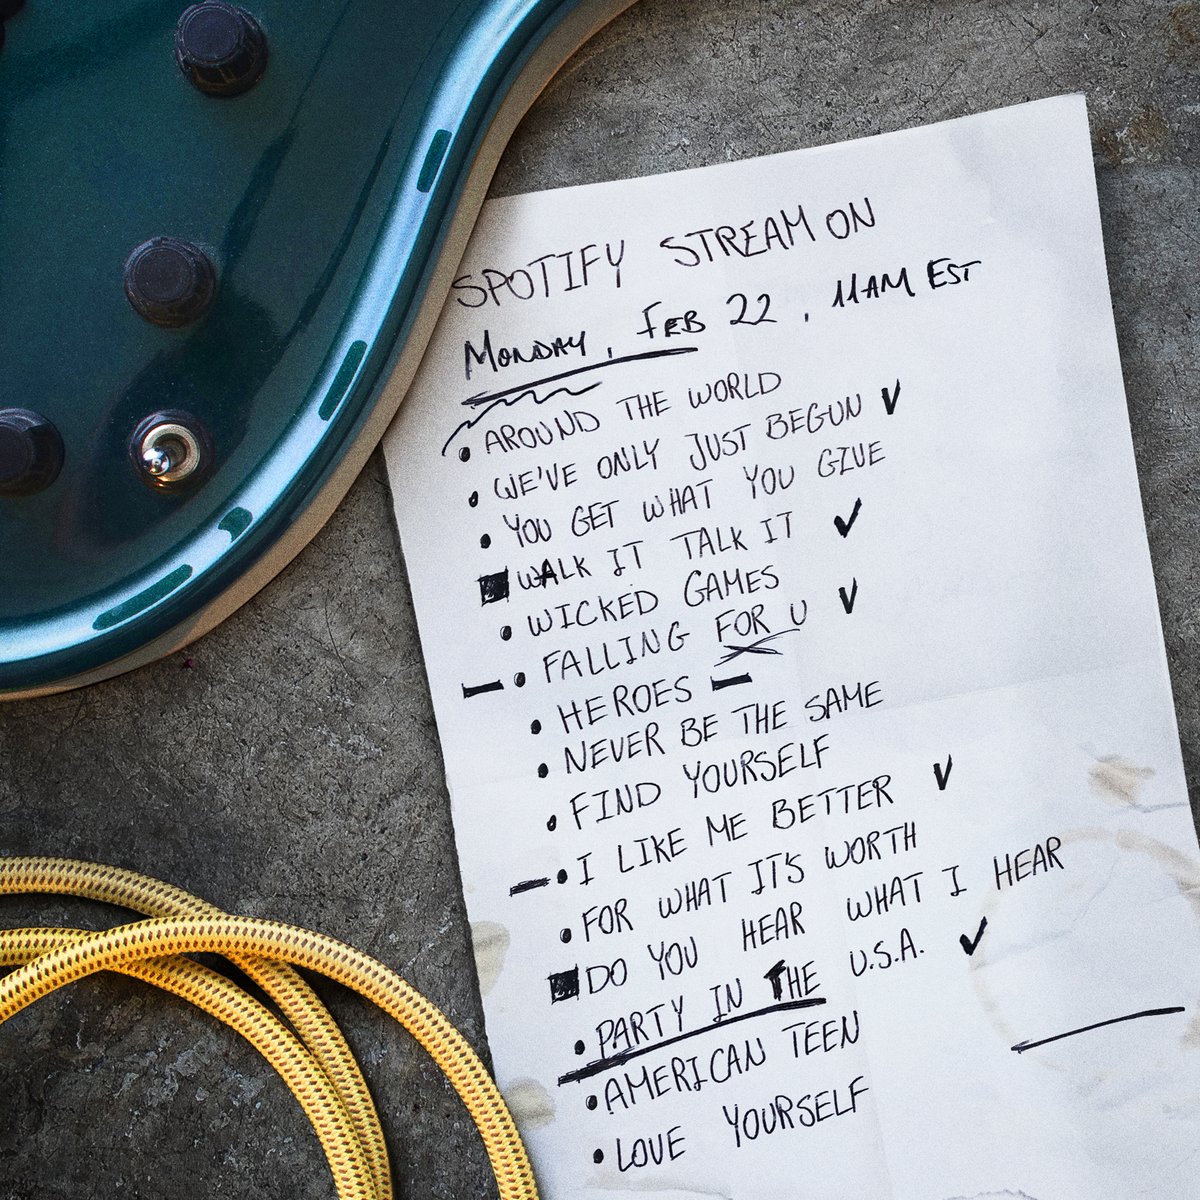 SPOTIFY STREAM ON
MONDAY, FEB 22, 11AM EST
• AROUND THE WORLD
• WE'VE ONLY JUST BEGUN ✓
• YOU GET WHAT YOU GIVE
■ WALK IT TALK IT ✓
• WICKED GAMES
• FALLING FOR U ✓
• HEROES
• NEVER BE THE SAME
• FIND YOURSELF
• I LIKE ME BETTER ✓
• FOR WHAT IT'S WORTH
■ DO YOU HEAR WHAT I HEAR
• PARTY IN THE U.S.A. ✓
• AMERICAN TEEN
• LOVE YOURSELF